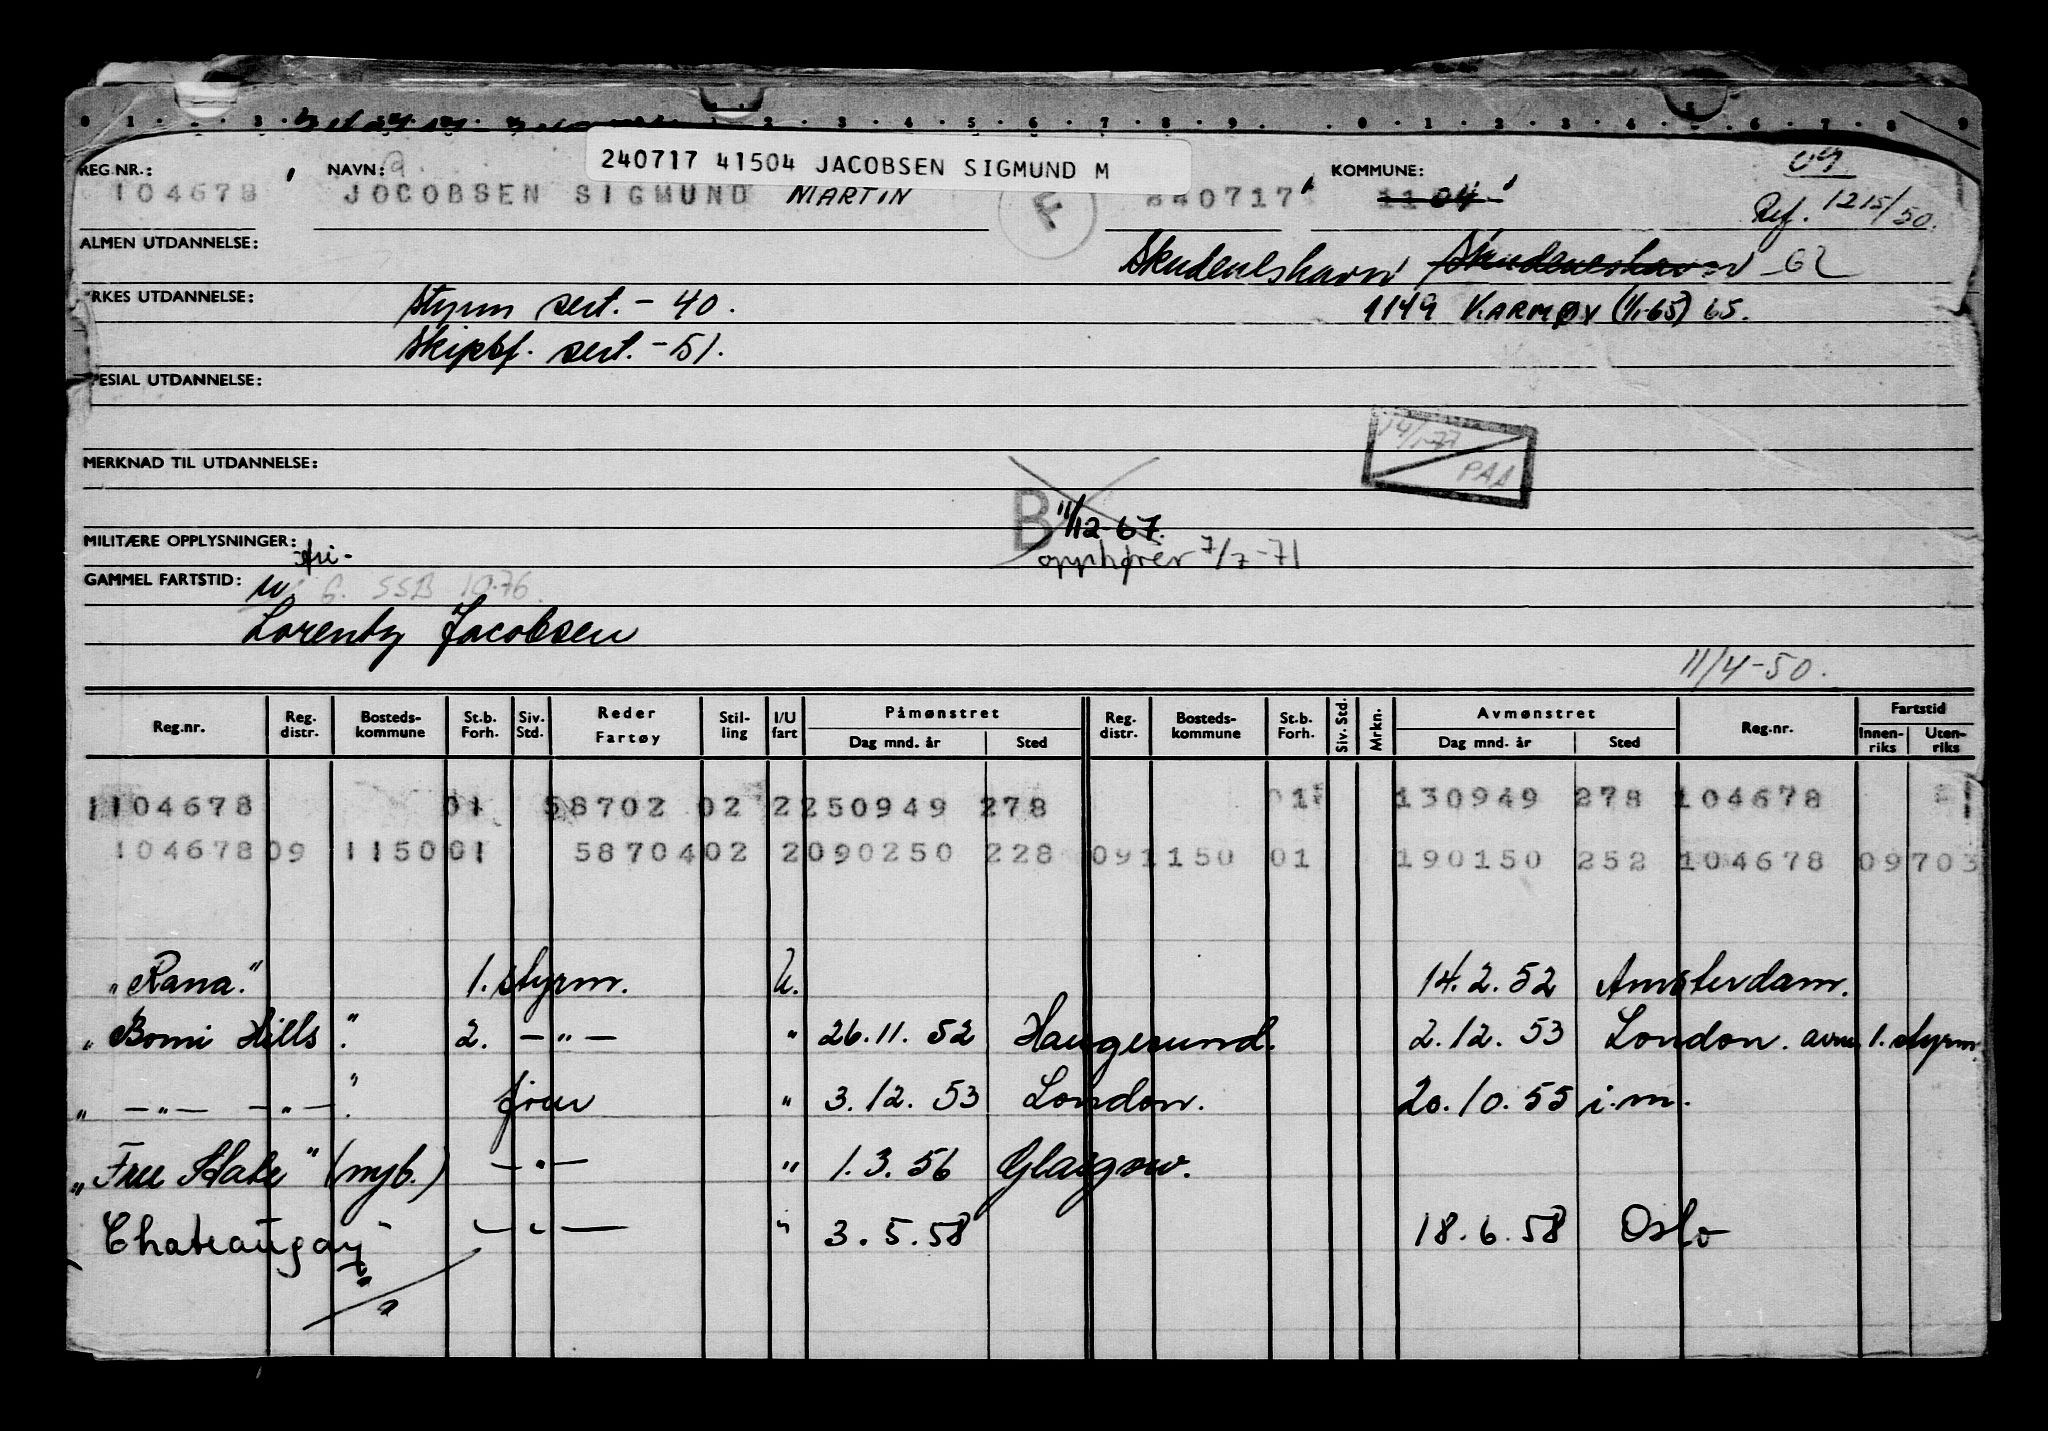 240717 41504 JACOBSEN SIGMUND M
REG.NR.: NAVN: KOMMUNE: 09
104678 JOCOBSEN SIGMUND MARTIN F 640717 1104 Ref. 1215/50.
ALMEN UTDANNELSE: Skudeneshavn Skudeneshavn -62
RKES UTDANNELSE: Styrm sert. - 40. 1149 KARMØY (1/1-65) 65.
Skipsf. sert. - 51.
ESIAL UTDANNELSE:
14/1-77
PAA
MERKNAD TIL UTDANNELSE:
B 11/12-67.
MILITÆRE OPPLYSNINGER: opphører 7/7-71
GAMMEL FARTSTID: G. SSB 10.76.
Lorentz Jacobsen
11/4-50.
Reg.nr. Reg. distr. Bosteds-kommune St.b. Forh. Siv. Std. Reder Fartøy Stil-ling I/U fart Påmønstret Dag mnd. år Sted Reg. distr. Bosteds-kommune St.b. Forh. Siv. Std. Mrkn. Avmønstret Dag mnd. år Sted Reg.nr. Fartstid Innen-riks Uten-riks
1104678 01 58702 02 2 250949 278 01 130949 278 104678
104678 09 1150 01 58704 02 2 090250 228 09 1150 01 190150 252 104678 09 703
"Rana." 1. styrm. U. 14.2.52 Amsterdam.
"Bomi Hills". 2. - " - " 26.11.52 Haugesund. 2.12.53 London. avm. 1. styrm.
" - " - - " - ". fører " 3.12.53 London. 20.10.55 i.m.
"Free State" (nyb.) - " - " 1.3.56 Glasgow.
Chateaugay" - " - " 3.5.58 18.6.58 Oslo